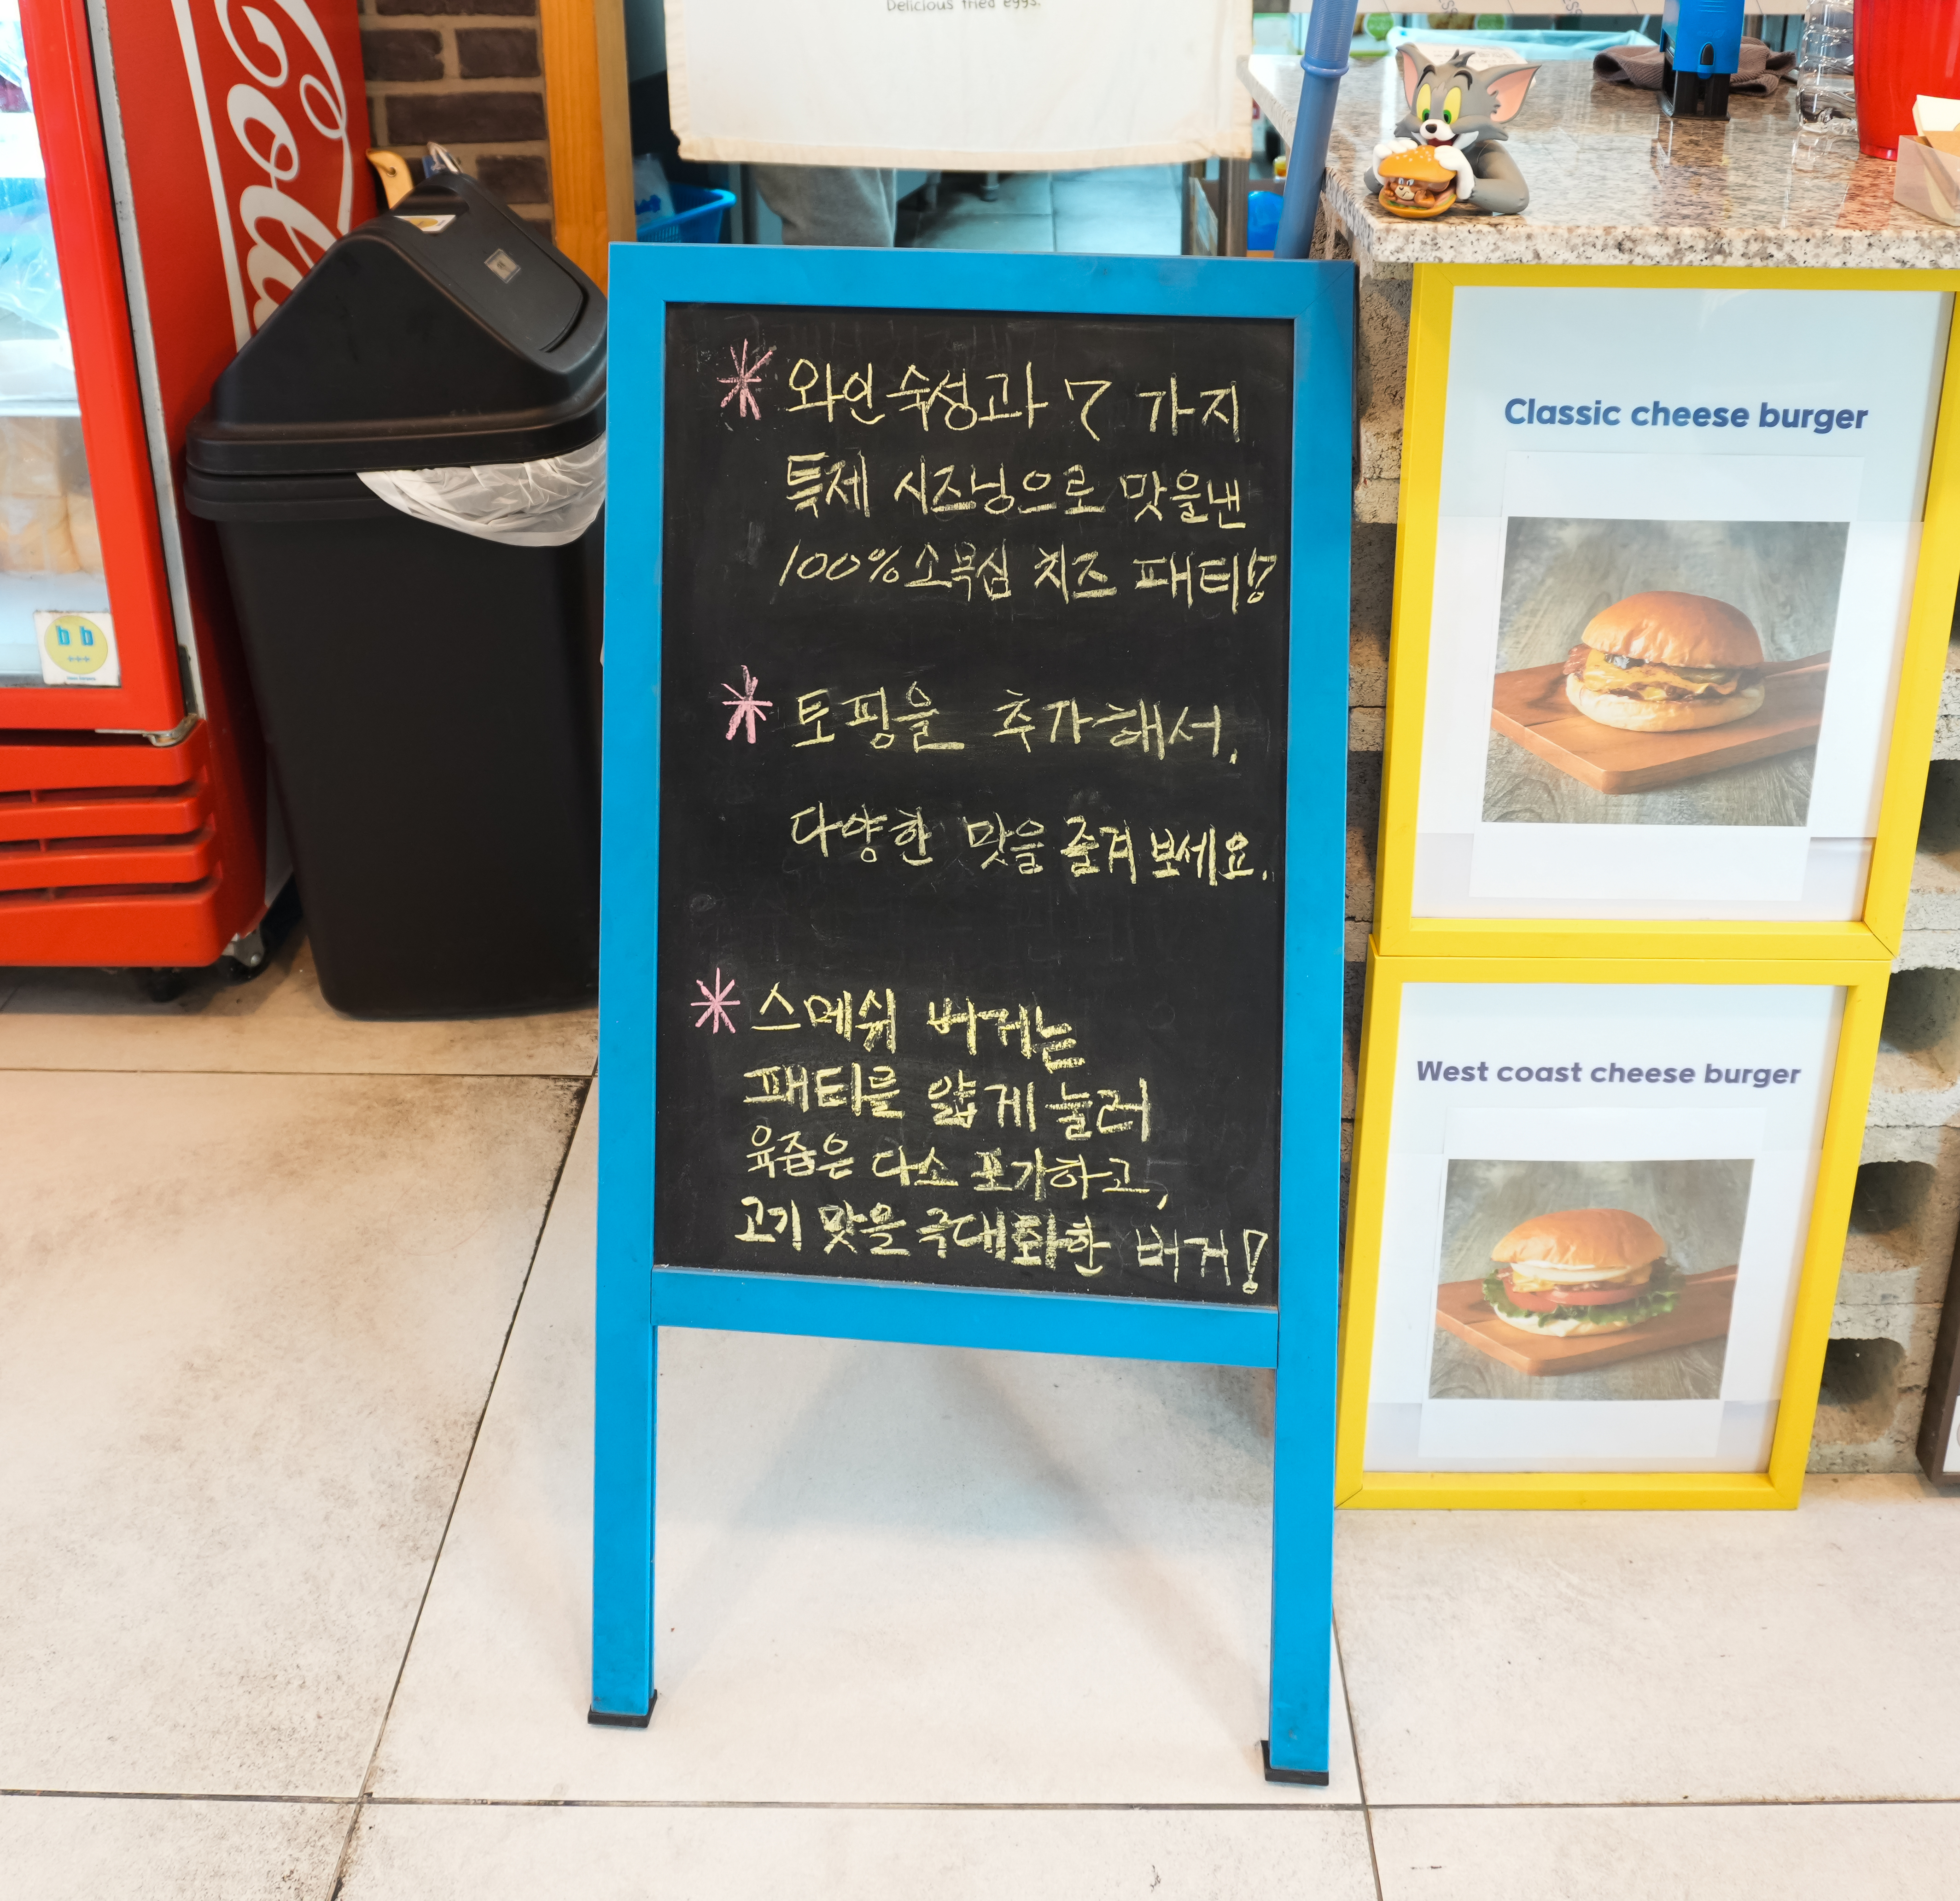 Delicious fried eggs.
Cola
* 와인숙성과 7 가지
특제 시즈닝으로 맛을낸
100%소목심 치즈 패티!
* 토핑을 추가해서,
다양한 맛을 즐겨보세요.
* 스메쉬 버거는
패티를 얇게 눌러
육즙은 다소 포기하고,
고기 맛을 극대화한 버거!
Classic cheese burger
West coast cheese burger